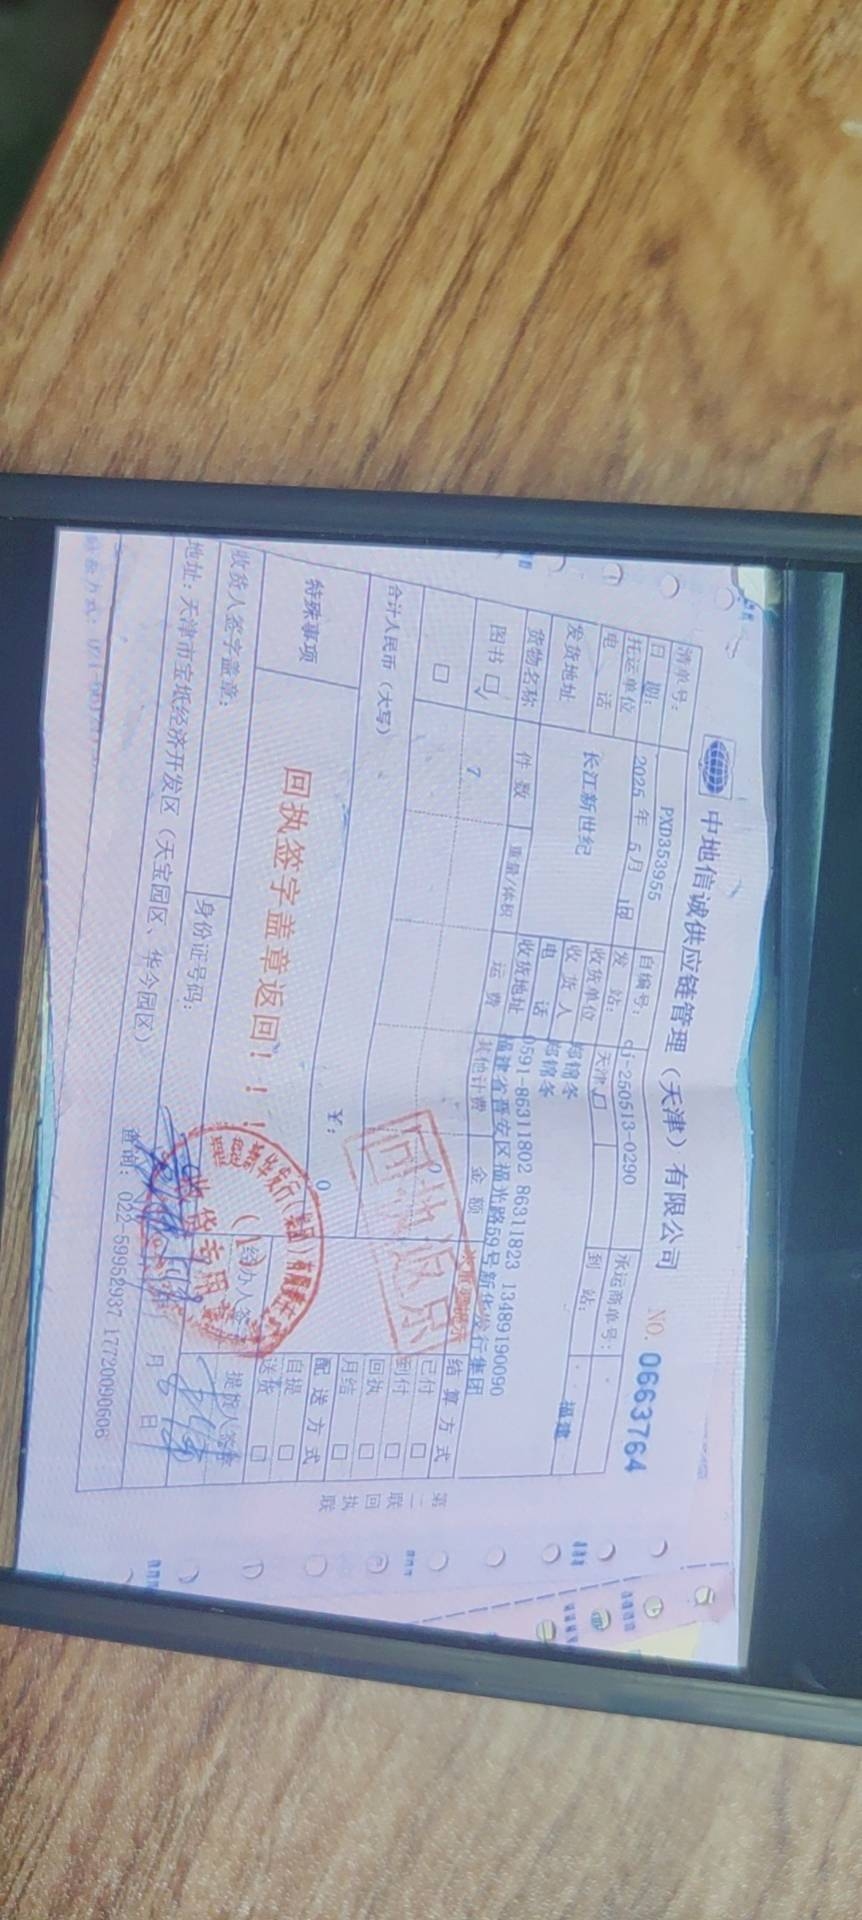 中地信诚供应链管理（天津）有限公司
NO. 0663764
清单号： PXD353955 自编号： cj-250513-0290 承运商单号：
日 期： 2025 年 5月 发 站： 天津 到 站： 福建
托运单位 长江新世纪 收货单位 郑锦冬
电 话 收 货 人 郑锦冬
发货地址 电 话 0591-86311802 86311823 13489190090
收货地址 福建省晋安区福光路59号新华发行集团
货物名称 件 数 重量/体积 运 费 其他计费 金 额 结 算 方 式
图书 7 已付
0 到付
回执
月结
合计人民币（大写） ￥： 0
配 送 方 式
自提
送货
特殊事项 回执签字盖章返回！！！
经办人签
提货人签
收货人签字盖章： 身份证号码： 月 日
地址：天津市宝坻经济开发区（天宝园区、华今园区） 查询： 022-59952937 17720090606
第二联 回执联